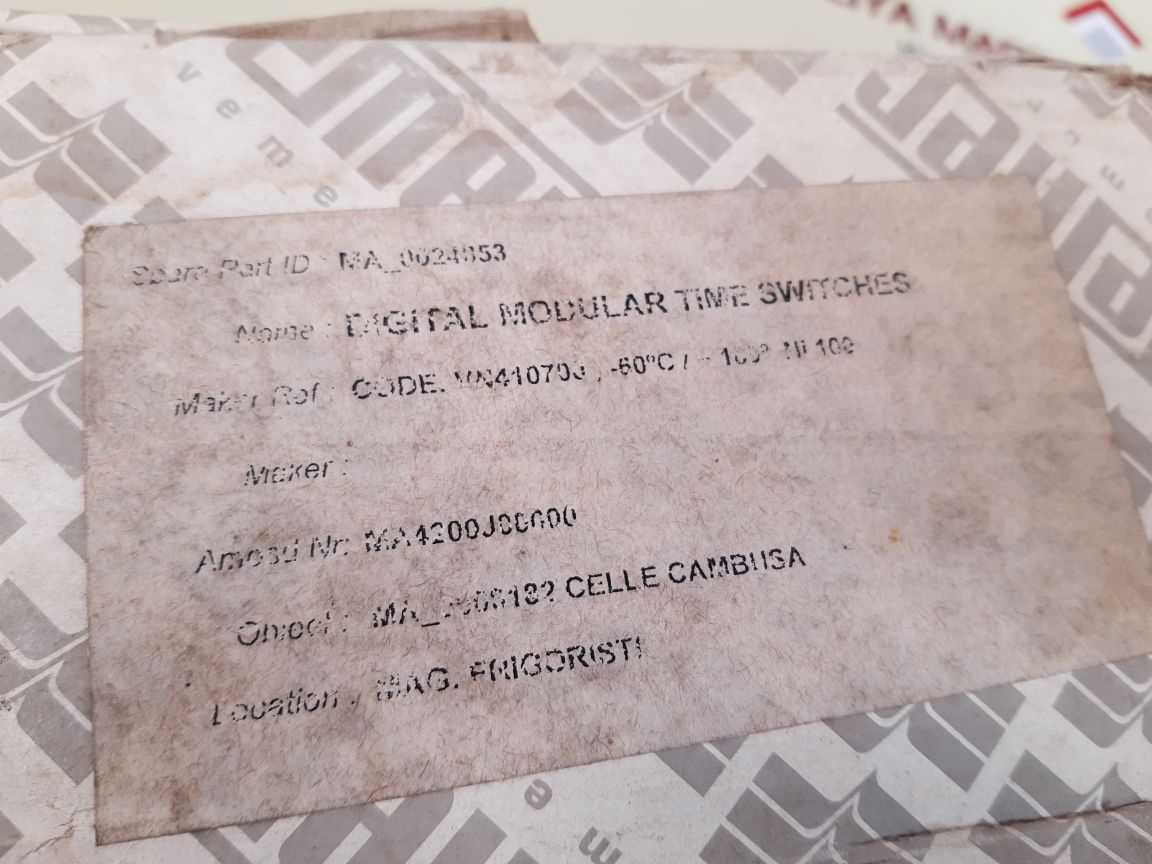 veme
Spare Part ID : MA_0024853
Name : DIGITAL MODULAR TIME SWITCHES
Maker Ref : CODE. VN410700 , -60ºC / + 100º NI 100
Maker :
Amosu Nr: MA4200J00000
Object : CELLE CAMBUSA
Location : MAG. FRIGORISTI